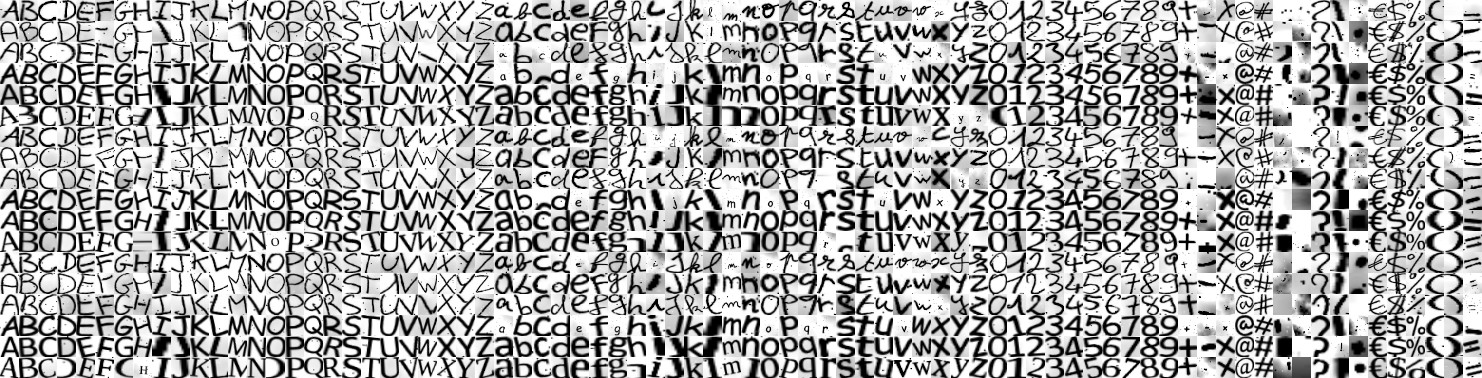 ABCDEFGHIJKLMNOPQRSTUVWXYZabcdefghijklmnopqrstuvwxyz0123456789+-x@#?!.€$%()=
ABCDEFGHIJKLMNOPQRSTUVWXYZabcdefghijklmnopqrstuvwxyz0123456789+-x@#?!.€$%()=
ABCDEFGHIJKLMNOPQRSTUVWXYZabcdefghijklmnopqrstuvwxyz0123456789+-x@#?!.€$%()=
ABCDEFGHIJKLMNOPQRSTUVWXYZabcdefghijklmnopqrstuvwxyz0123456789+-x@#?!.€$%()=
ABCDEFGHIJKLMNOPQRSTUVWXYZabcdefghijklmnopqrstuvwxyz0123456789+-x@#?!.€$%()=
ABCDEFGHIJKLMNOPQRSTUVWXYZabcdefghijklmnopqrstuvwxyz0123456789+-x@#?!.€$%()=
ABCDEFGHIJKLMNOPQRSTUVWXYZabcdefghijklmnopqrstuvwxyz0123456789+-x@#?!.€$%()=
ABCDEFGHIJKLMNOPQRSTUVWXYZabcdefghijklmnopqrstuvwxyz0123456789+-x@#?!.€$%()=
ABCDEFGHIJKLMNOPQRSTUVWXYZabcdefghijklmnopqrstuvwxyz0123456789+-x@#?!.€$%()=
ABCDEFGHIJKLMNOPQRSTUVWXYZabcdefghijklmnopqrstuvwxyz0123456789+-x@#?!.€$%()=
ABCDEFGHIJKLMNOPQRSTUVWXYZabcdefghijklmnopqrstuvwxyz0123456789+-x@#?!.€$%()=
ABCDEFGHIJKLMNOPQRSTUVWXYZabcdefghijklmnopqrstuvwxyz0123456789+-x@#?!.€$%()=
ABCDEFGHIJKLMNOPQRSTUVWXYZabcdefghijklmnopqrstuvwxyz0123456789+-x@#?!.€$%()=
ABCDEFGHIJKLMNOPQRSTUVWXYZabcdefghijklmnopqrstuvwxyz0123456789+-x@#?!.€$%()=
ABCDEFGHIJKLMNOPQRSTUVWXYZabcdefghijklmnopqrstuvwxyz0123456789+-x@#?!.€$%()=
ABCDEFGHIJKLMNOPQRSTUVWXYZabcdefghijklmnopqrstuvwxyz0123456789+-x@#?!.€$%()=
ABCDEFGHIJKLMNOPQRSTUVWXYZabcdefghijklmnopqrstuvwxyz0123456789+-x@#?!.€$%()=
ABCDEFGHIJKLMNOPQRSTUVWXYZabcdefghijklmnopqrstuvwxyz0123456789+-x@#?!.€$%()=